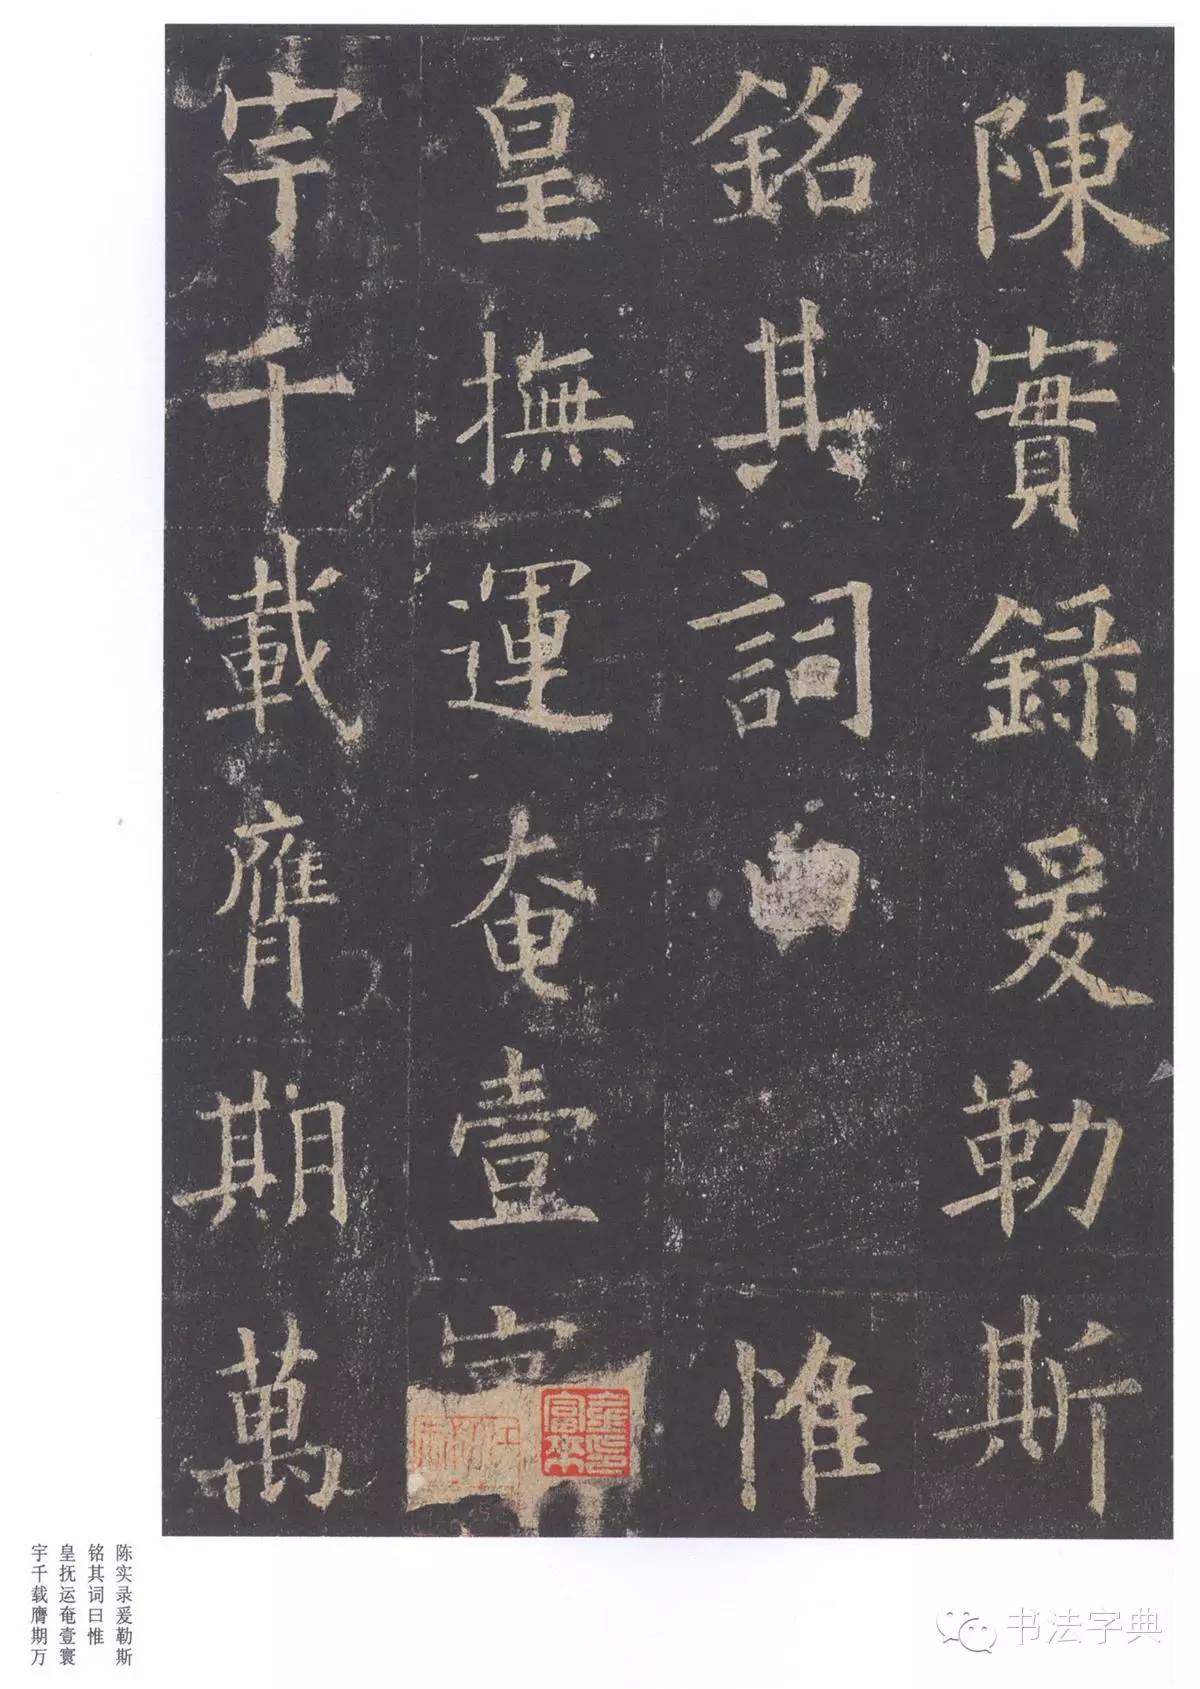 陳實錄爰勒斯
銘其詞曰惟
皇撫運奄壹寰
宇千載膺期萬
陈实录爰勒斯
铭其词曰惟
皇抚运奄壹寰
宇千载膺期万
书法字典